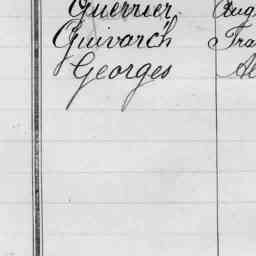 Guerrier. Aug
Guivarch Fra
Georges